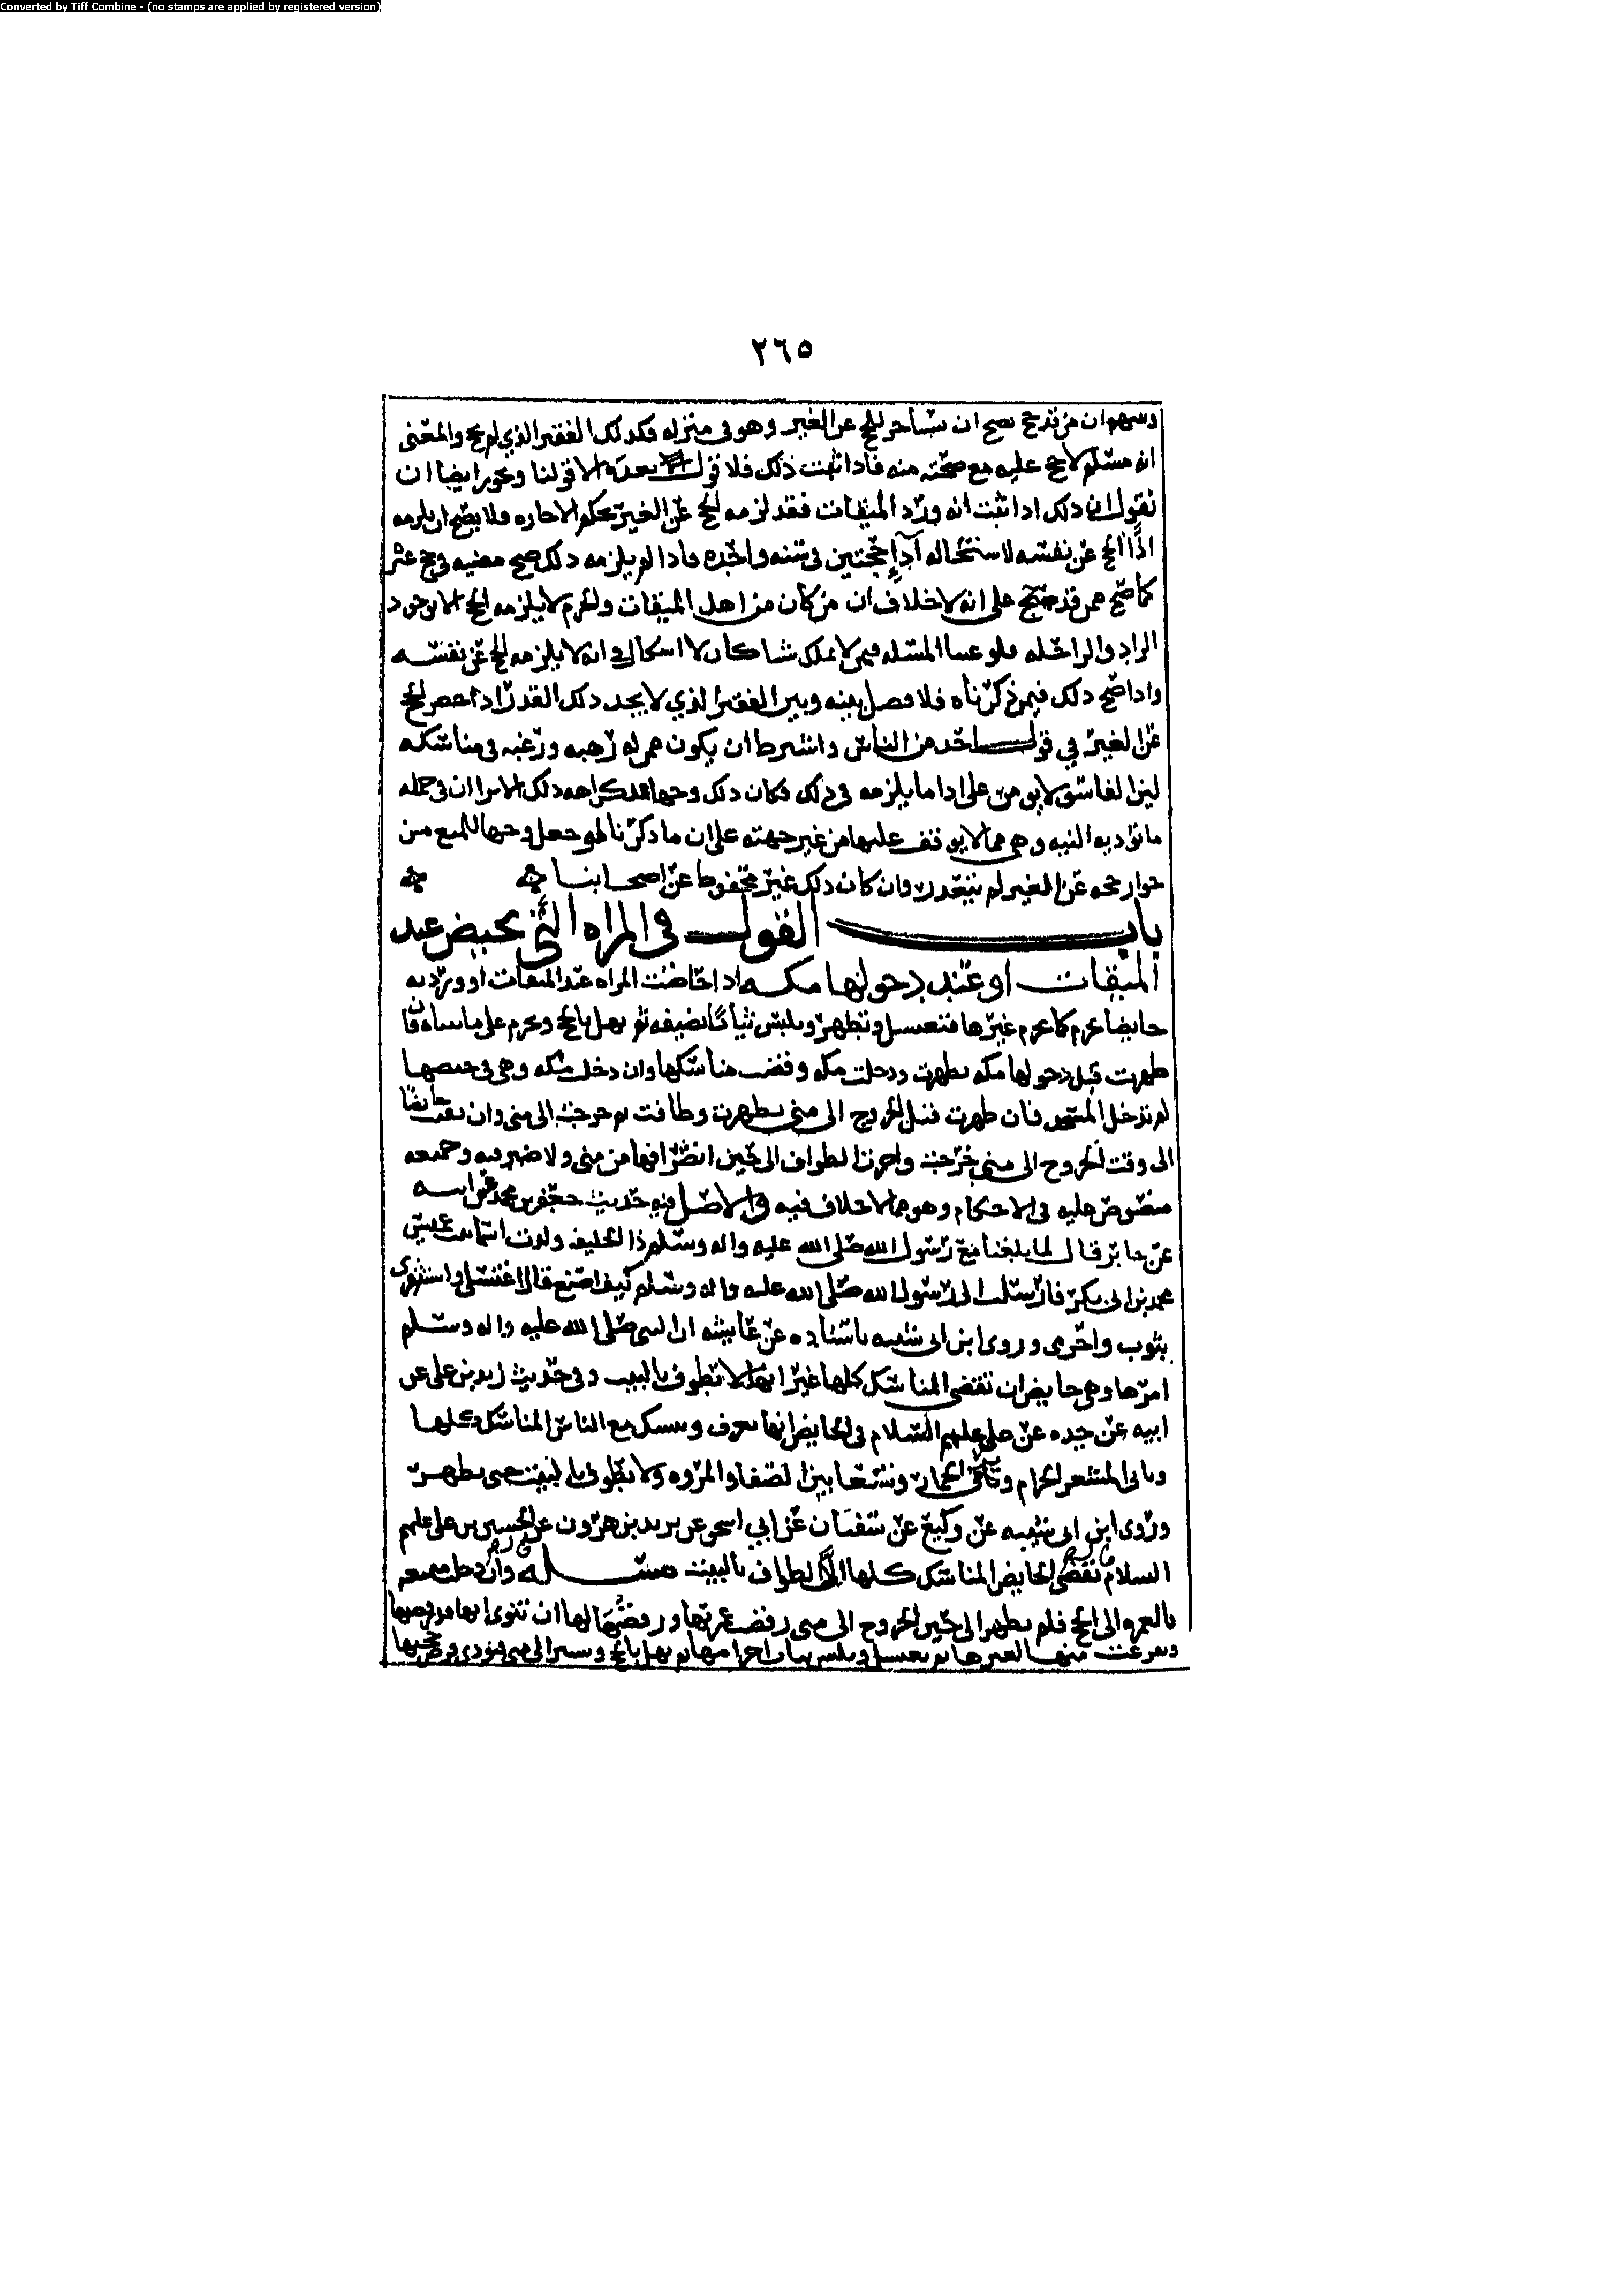 Converted by Tiff Combine - (no stamps are applied by registered version)
٢٦٥
ان من قد حج صح ان يستاجر للحج عن الغير وهو في منزله فكذلك الفقير الذي لم يحج والمعنى
انه مسلم لا حج عليه مع صحته منه فاذا ثبت ذلك فلا قول بعده الا قولنا ويجوز ايضا ان
نقول ان ذلك اذا ثبت انه ورد الميقات فقد لزمه الحج عن الغير بحكم الاجاره ولا يصح ان يلزمه
اذًا الحج عن نفسه لاستحاله اداء حجتين في سنه واحده واذا لم يلزمه ذلك صح مضيه في حج غيره
كما صح ممن قد حج على انه لا خلاف ان من كان من اهل الميقات والحرم لا يلزمه الحج الا بوجود
الزاد والراحله فلو المسله فيمن لا يملك شيا كان لا اشكال انه لا يلزمه الحج عن نفسه
واذا صح ذلك فيمن ذكرناه فلا فصل بينه وبين الفقير الذي لا يجد ذلك القدر اذا حضر للحج
عن الغير في قول احد من الناس واشترط ان يكون ممن له رهبه ورغبه في مناسكه
لان الفاسق لا يومن على ادا ما يلزمه في ذلك فكان ذلك وجها ذلك الا ان في جمله
ما تؤديه النيه وهي مما لا يوقف عليها من غير جهته على ان ما ذكرنا لو جعل وجها للمنع من
جواز حجه عن الغير لم يبعد وان كان ذلك غير محفوظ عن اصحابنا
باب القول في المراه التي تحيض عند
الميقات او عند دخولها مكه اذا حاضت المراه عند الميقات او وردته
حايضا تحرم كما يحرم غيرها فتغتسل وتطهر وتلبس ثيابًا نضيفه ثم تهل بالحج وتحرم على ما بيناه فان
طهرت قبل دخولها مكه تطهرت ودخلت مكه وقضت مناسكها وان دخلت مكه وهي في حيضها
لم تدخل المسجد فان طهرت قبل الخروج الى منى تطهرت وطافت ثم خرجت الى منى وان بقيت حايضًا
الى وقت الخروج الى منى خرجت واخرت الطواف الى حين انصرافها من منى ولا ضير فيه وجميعه
منصوص عليه في الاحكام وهو مما لا خلاف فيه والاصل فيه حديث جعفر بن محمد عن ابيه
عن جابر قال لما بلغنا مع رسول الله صلى الله عليه واله وسلم ذا الحليفه ولدت اسما بنت عميس
محمد بن ابي بكر فارسلت الى رسول الله صلى الله عليه واله وسلم كيف اصنع قال اغتسلي واستثفري
بثوب واحرمي وروى ابن ابي شيبه باسناده عن عايشه ان النبي صلى الله عليه واله وسلم
امرها وهي حايض ان تقضي المناسك كلها غير انها لا تطوف بالبيت وفي حديث زيد بن علي عن
ابيه عن جده عن علي عليهم السلام في الحايض انها تعرف وتنسك مع الناس المناسك كلها
وتاتي المشعر الحرام وترمي الجمار وتسعا بين الصفا والمروه ولا تطوف بالبيت حتى تطهر
وروى ابن ابي شيبه عن وكيع عن سفيان عن ابي اسحق عن بن هرون عن الحسين بن علي عليهم
السلام تقضي الحايض المناسك كلها الا الطواف بالبيت مسله وان دخلت
بالعمره الى الحج فلم تطهر الى حين الخروج الى منى رفضت عمرتها ورفضها لها ان تنوي انها قد رفضتها
وتفرغت منها لغيرها ثم تغتسل وتلبس ثياب احرامها ثم تهل بالحج وتسير الى منى فتؤدي فرض حجها